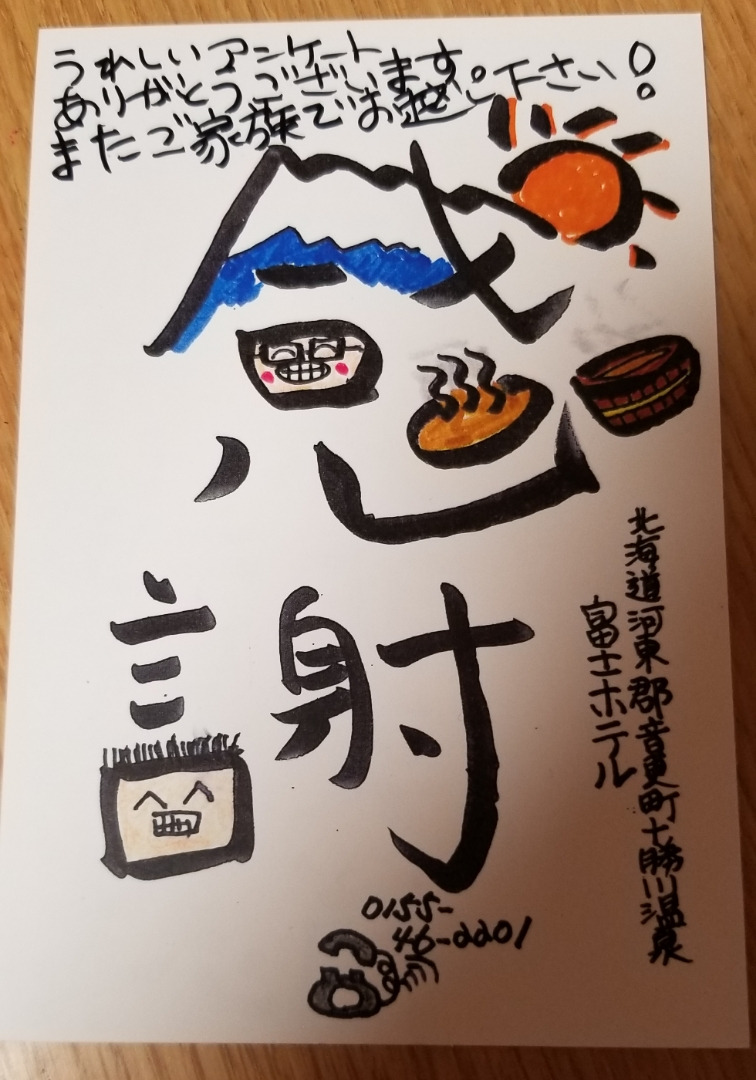 うれしいアンケート
ありがとうございます
またご家族でお越し下さい!
感謝
北海道河東郡音更町十勝川温泉
富士ホテル
0155-
46-2201